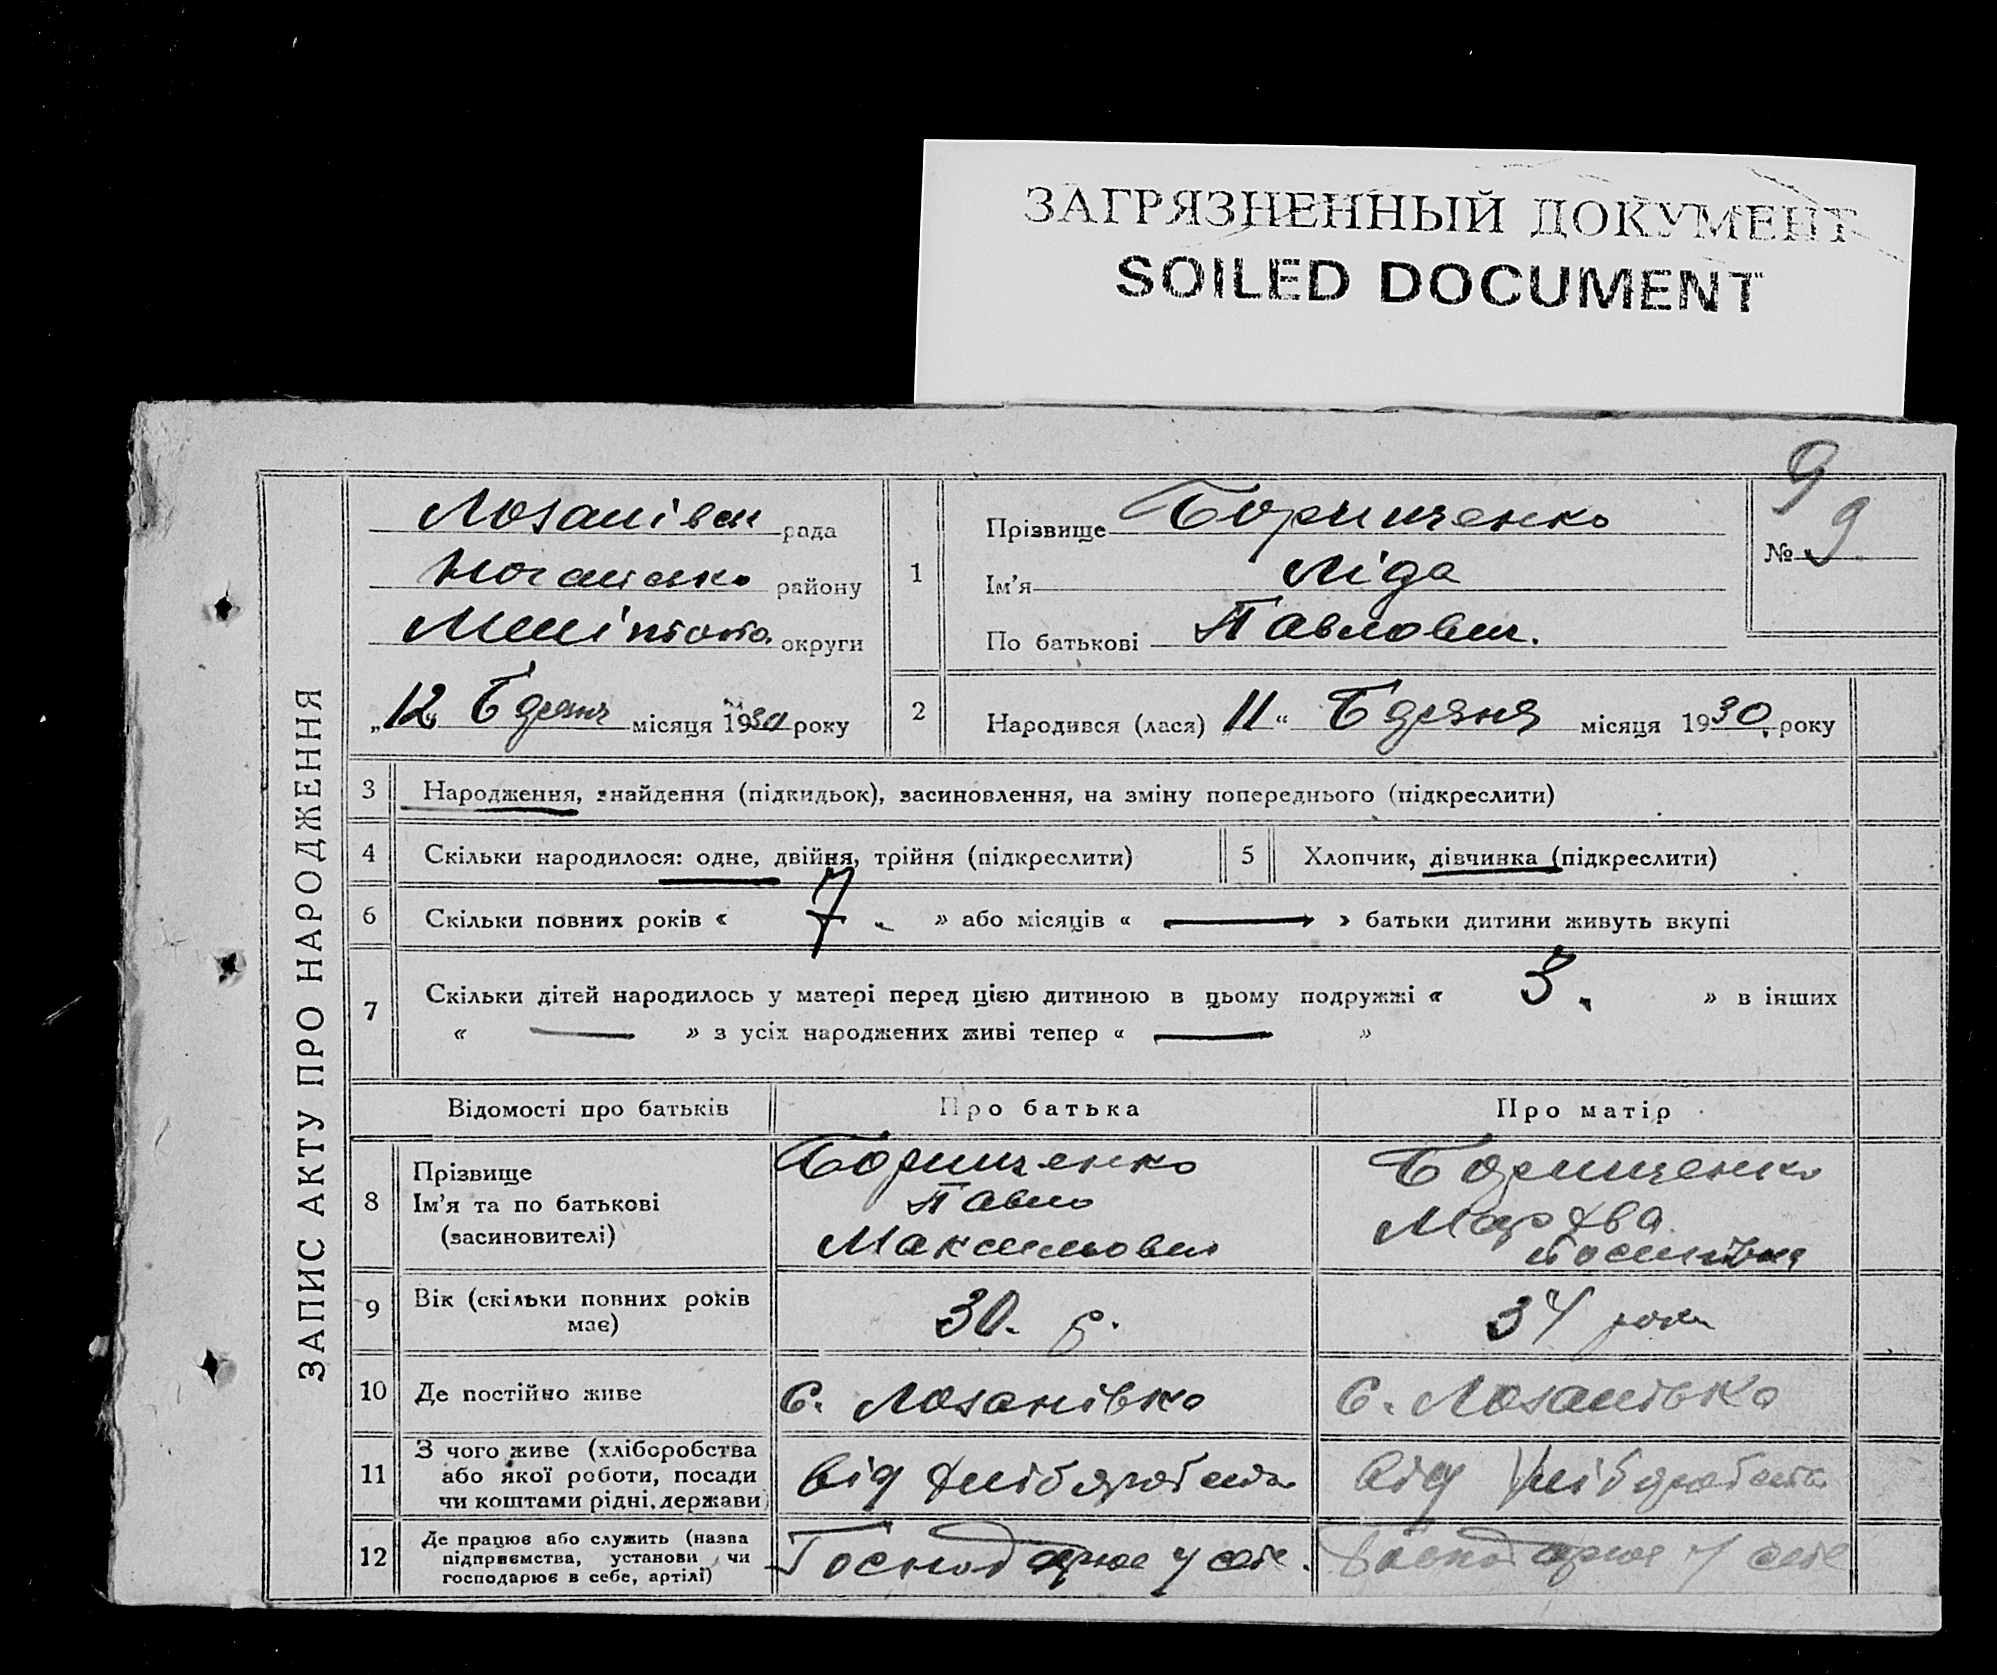 ЗАГРЯЗНЕННЫЙ ДОКУМЕНТ
SOILED DOCUMENT
ЗАПИС АКТУ ПРО НАРОДЖЕННЯ
9
№ 9
рада
району
округи
„12„ місяця 1930 року
1
Прізвище Борищенко
Ім'я Ліда
По батькові Павловн.
2 Народився (лася) „11“ місяця 1930 року
3 Народження, знайдення (підкидьок), засиновлення, на зміну попереднього (підкреслити)
4 Скільки народилося: одне, двійня, трійня (підкреслити)
5 Хлопчик, дівчинка (підкреслити)
6 Скільки повних років « 7. » або місяців « — » батьки дитини живуть вкупі
7 Скільки дітей народилось у матері перед цією дитиною в цьому подружжі « 3. » в інших
« — » з усіх народжених живі тепер « — »
Відомості про батьків Про батька Про матір
8 Прізвище
Ім'я та по батькові
(засиновителі)
Борищенко
Павло
Максимович
Борищенко
9 Вік (скільки повних років
має)
30. р.
34 роки
10 Де постійно живе
с. Лозанівко
с. Лозанівко
11 З чого живе (хліборобства
або якої роботи, посади
чи коштами рідні, держави)
від хліборобства
від хліборобства
12 Де працює або служить (назва
підприємства, установи чи
господарює в себе, артілі)
Господарює у себе.
Господарює у себе